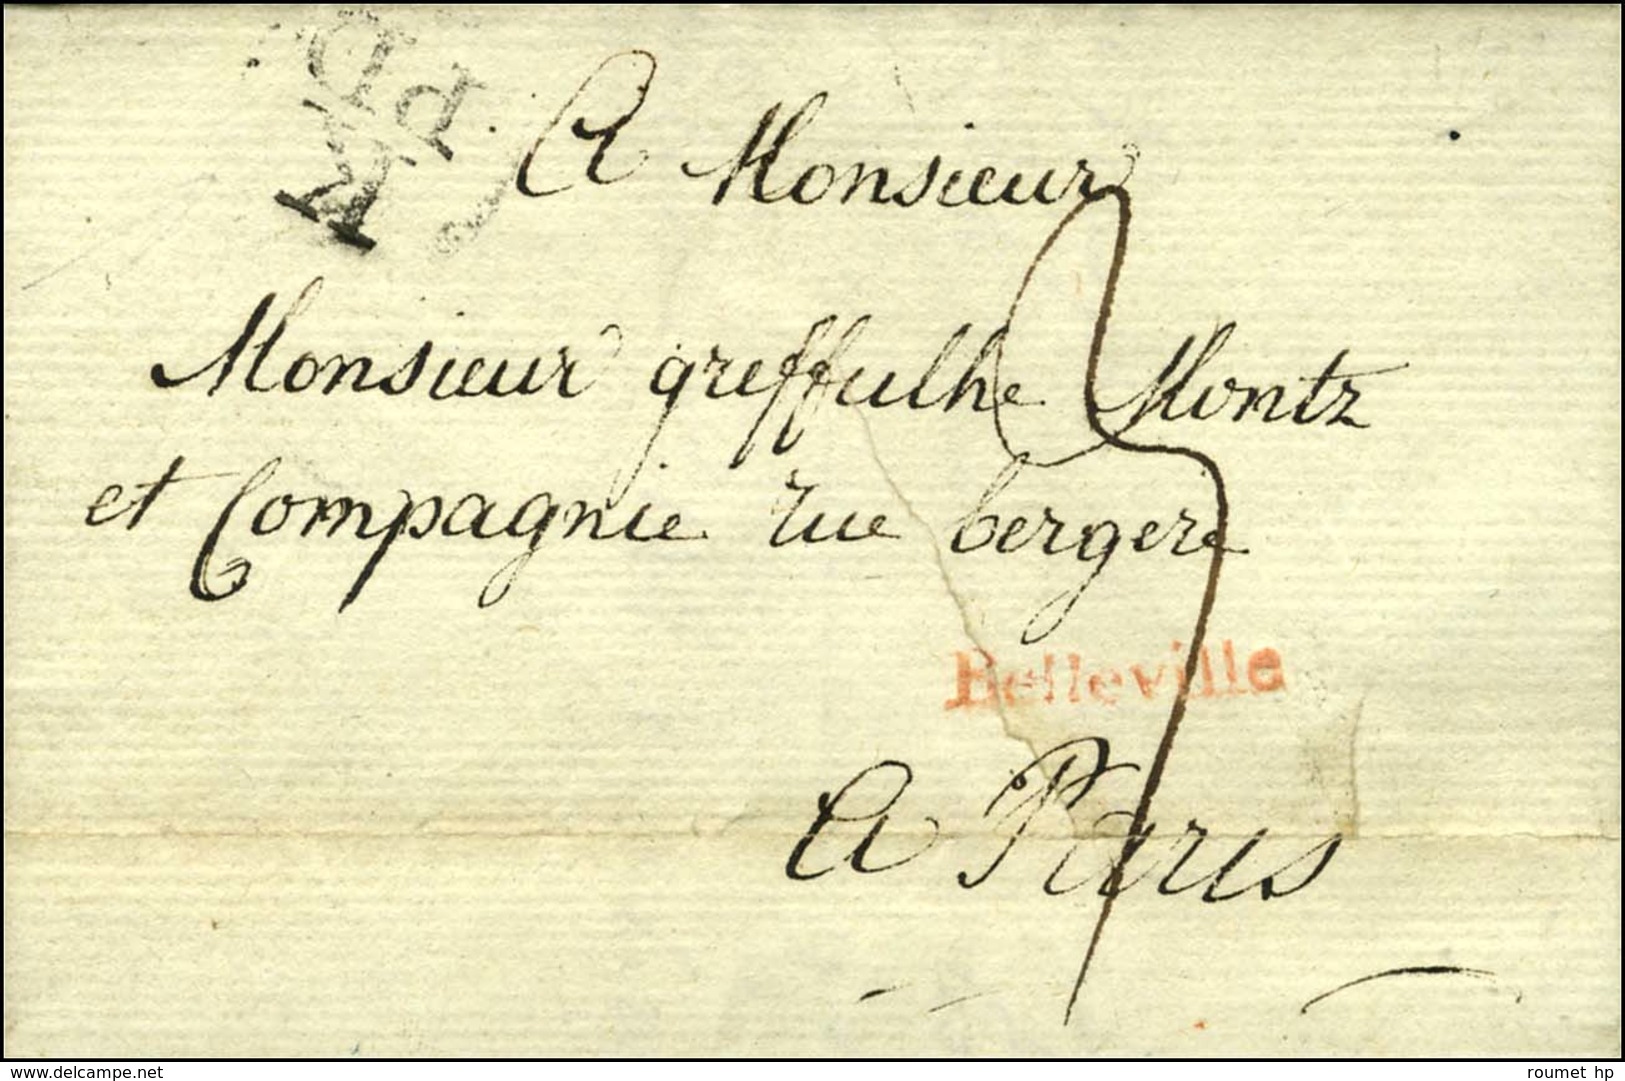 A Monsieur
Monsieur greffulhe Montz
et Compagnie rue bergere
Belleville
A Paris
www.delcampe.net
roumet hp